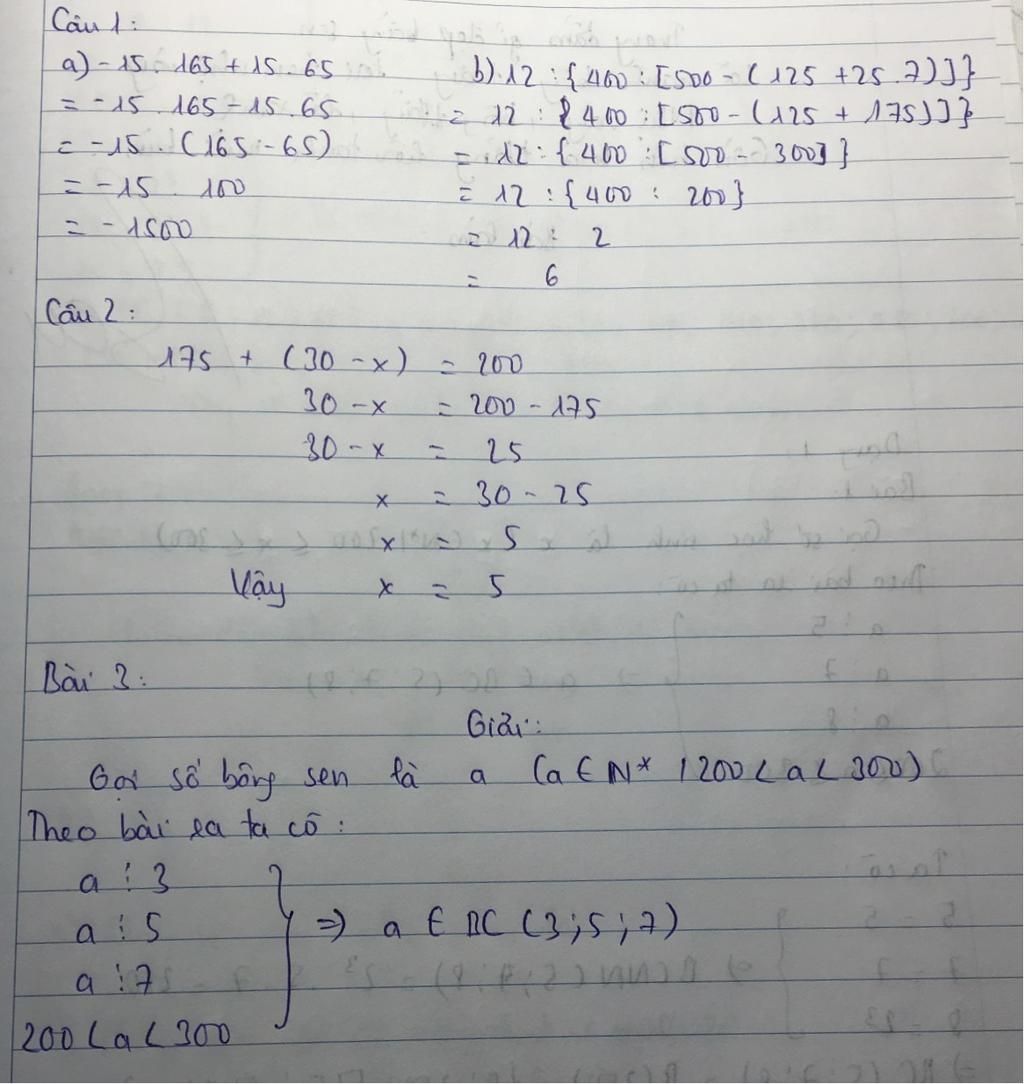 Câu 1:
a) -15 . 165 + 15 . 65
= -15 . 165 - 15 . 65
= -15 . (165 - 65)
= -15 . 100
= -1500
b) 12 : {400 : [500 - (125 + 25.7)]}
= 12 : {400 : [500 - (125 + 175)]}
= 12 : {400 : [500 - 300]}
= 12 : {400 : 200}
= 12 : 2
= 6
Câu 2:
175 + (30 - x) = 200
30 - x = 200 - 175
30 - x = 25
x = 30 - 25
x = 5
Vậy x = 5
Bài 3:
Giải:
Gọi số bông sen là a (a ∈ N* / 200 < a < 300)
Theo bài ra ta có:
a ⋮ 3
a ⋮ 5
a ⋮ 7
200 < a < 300
} => a ∈ BC (3;5;7)